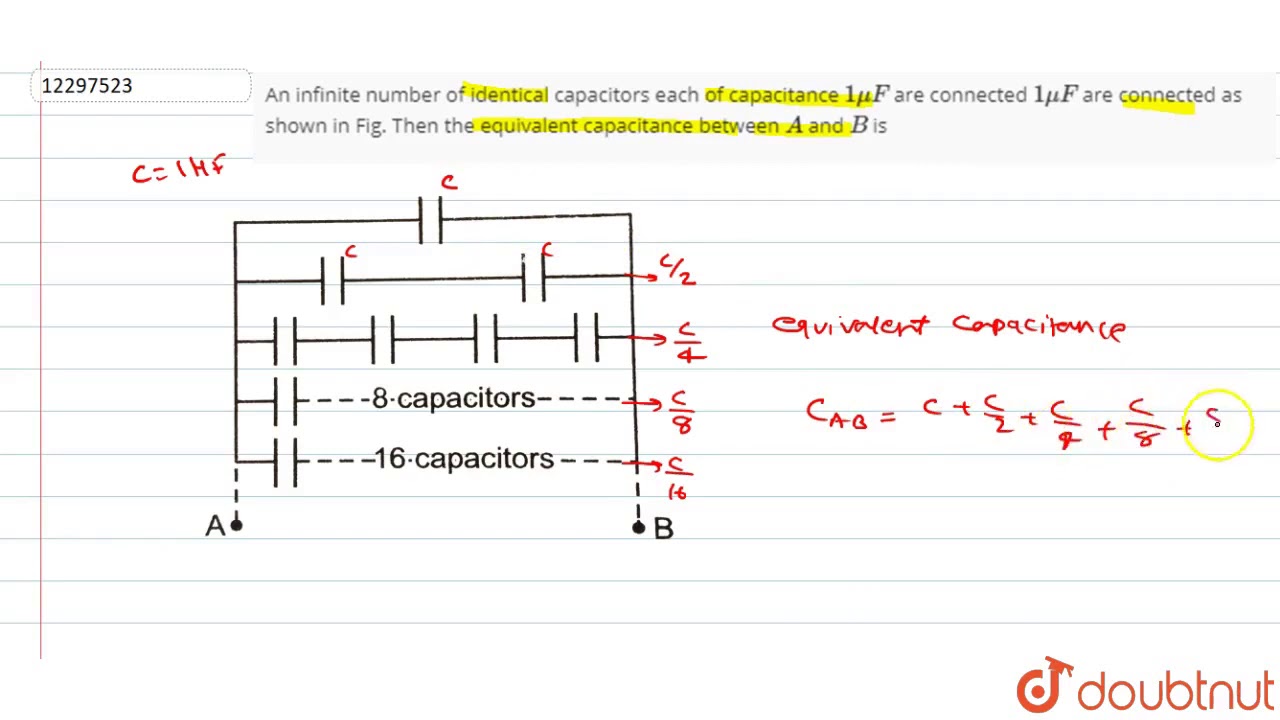 12297523
An infinite number of identical capacitors each of capacitance 1μF are connected 1μF are connected as
shown in Fig. Then the equivalent capacitance between A and B is
C = 1μF
C
C C C/2
C/4
equivalent capacitance
8·capacitors C/8
C_AB = C + C/2 + C/4 + C/8 +
16·capacitors C/16
A B
doubtnut